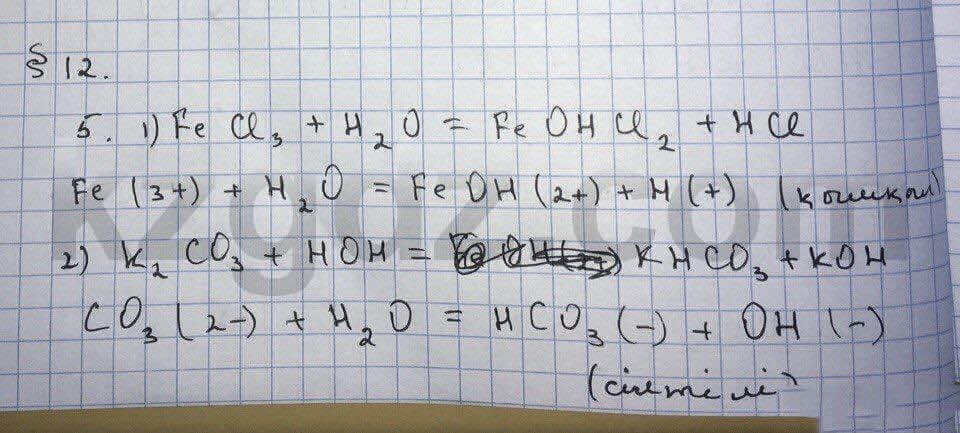 § 12.
5. 1) FeCl₃ + H₂O = FeOHCl₂ + HCl
Fe (3+) + H₂O = FeOH (2+) + H (+) (қышқыл)
2) K₂CO₃ + HOH = KHCO₃ + KOH
CO₃ (2-) + H₂O = HCO₃ (-) + OH (-)
(сілтілі)